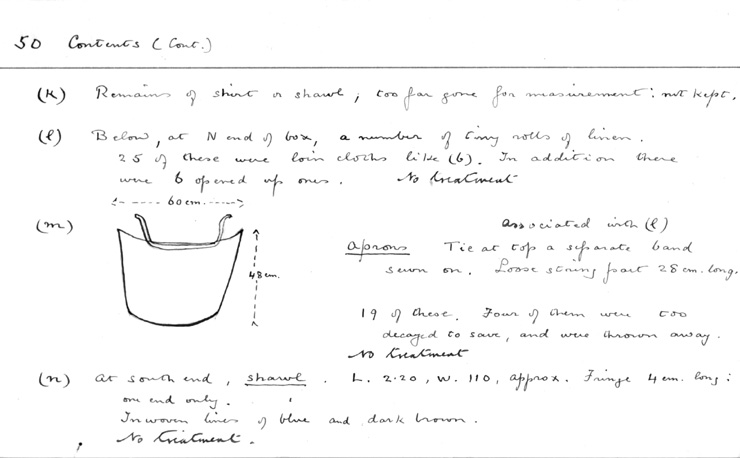 50 Contents (Cont.)
(k) Remains of shirt or shawl; too far gone for measurement: not kept.
(l) Below, at N end of box, a number of tiny rolls of linen.
25 of these were loin cloths like (b). In addition there
were 6 opened up ones. No treatment
60 cm.
(m)
48 cm.
associated with (l)
Aprons Tie at top a separate band
sewn on. Loose string part 28 cm. long.
19 of these. Four of them were too
decayed to save, and were thrown away.
No treatment
(n) At south end, shawl. L. 2.20, W. 110, approx. Fringe 4 cm. long:
one end only.
Inwoven lines of blue and dark brown.
No treatment.